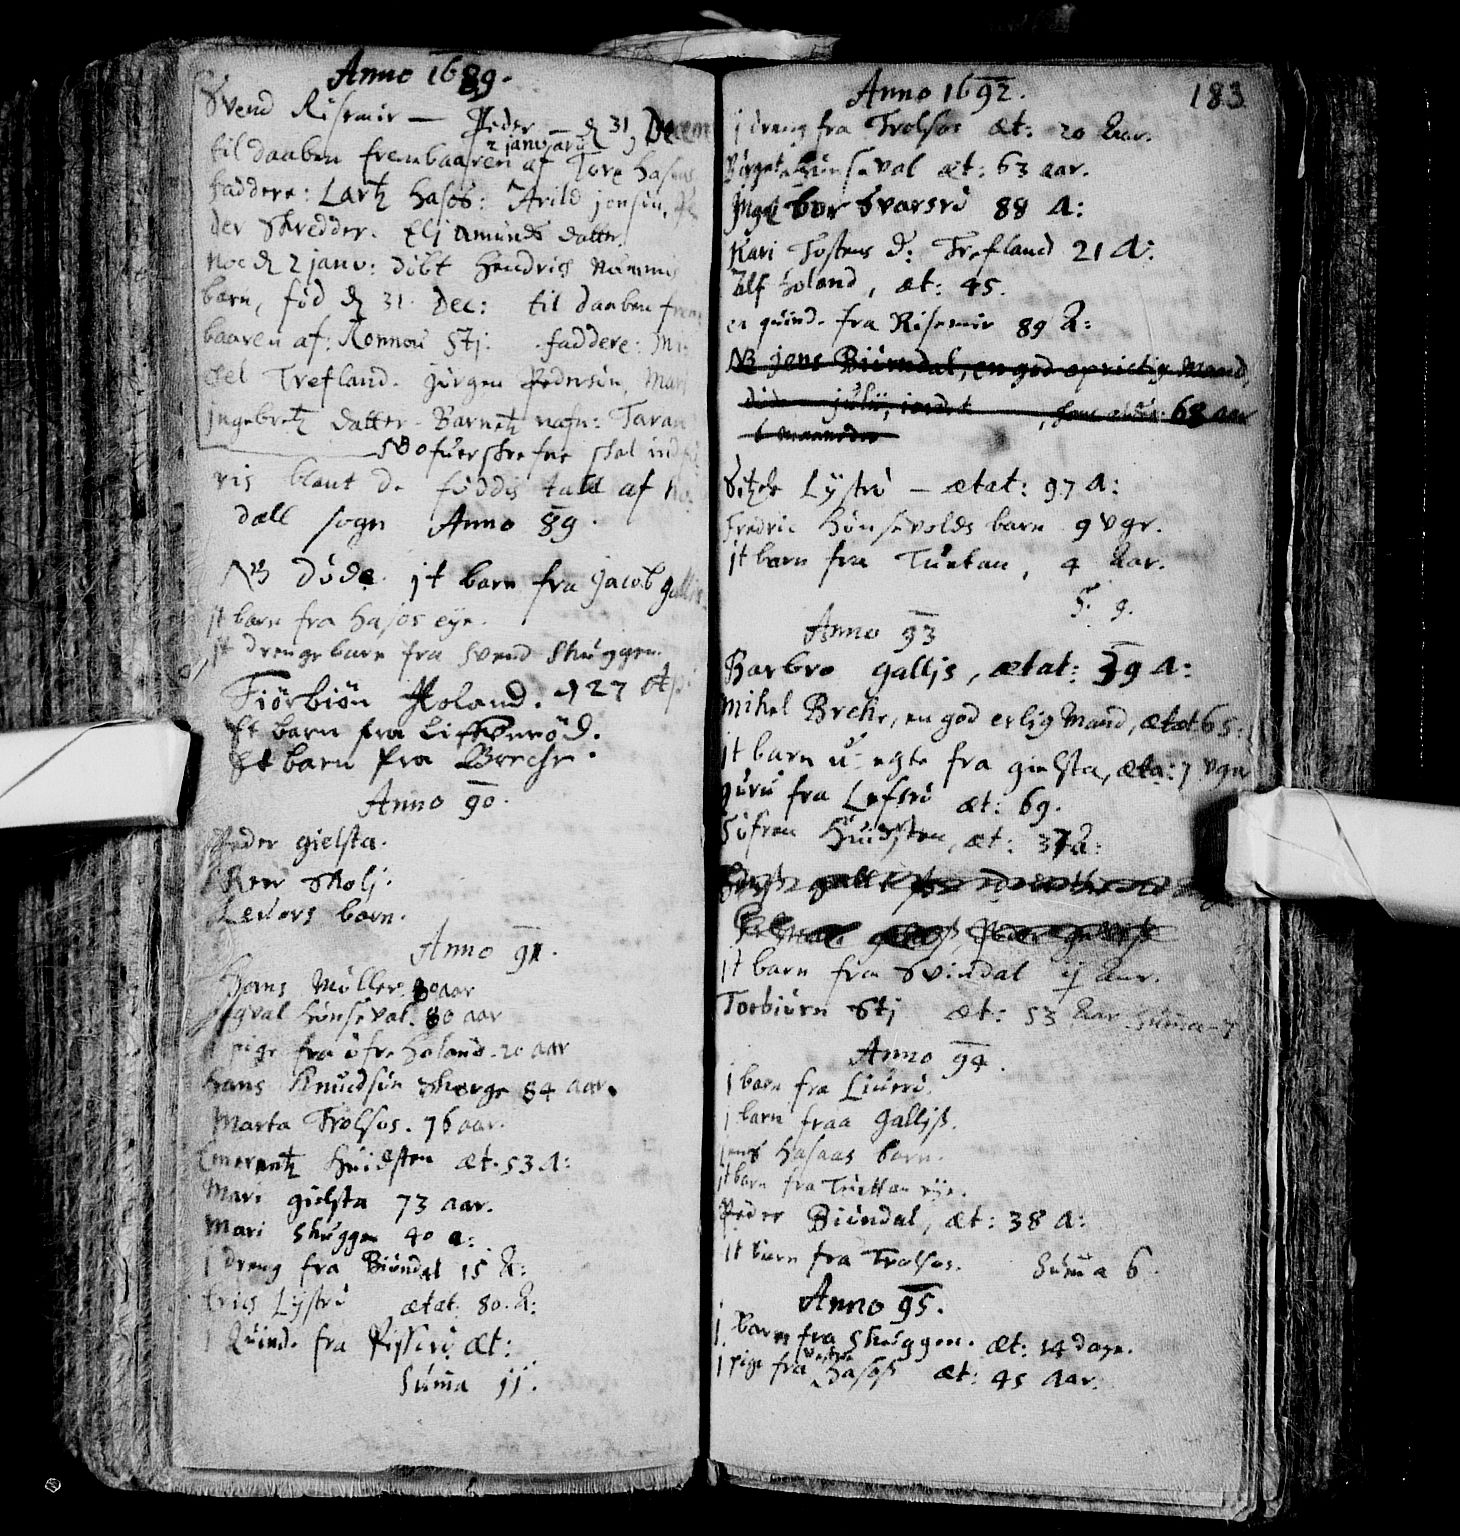 Anno 1689.
Svend Risemir — Peder — d 31, Decem
2 januarij
til daaben frembaaren af Tore Hasaas
faddere: Lartz Hasøs: Arild jensøn, Pe
der Skredder. Elj Amunds datter.
Noch d 2 janv: døbt Hendrich
barn, fød d 31. Dec: til daaben frem
baaren af: Ronnou Stj. faddere: Mi
chel Trefland. jørgen Pedersøn, Mari
jngebretz datter. Barnetz nafn: Taran
ofuerskrefne skal indfø
ris blant de føddis tall af
dall sogn Anno 89.
NB døde. jt barn fra Jacob gallis.
jt barn fra Hasøs eye.
jt drengebarn fra Svend Skuggen.
Tiørbiøn Holand. d 27 Ap
Et barn fra
Et barn fra Breche.
Anno 90.
Peder gielsta.
Skolj.
barn.
Anno 91.
Hans Møller 80 aar
Hønsevol. 80 aar
1 pige fra øfre Holand. 20 aar
Hans Knudsøn Skorge 84 aar.
Marta Trolsos. 76 aar.
Hvidsten æt. 53 A:
Mari gielsta 73 aar.
Mari Skuggen 40 a:
1 dreng fra Biøndal 15 A:
Erich Lystrø ætat. 80. A:
1 Quinde fra æt:
Suma 11.
183
Anno 1692.
1 dreng fra Trolsos æt: 20 Aar.
Birgeta Hønsevol æt: 63 aar.
88 A:
Kari Tostens d: Trefland 21 A:
Alf Holand, æt: 45.
en quinde fra Risemir 89 A:
NB jens Biørndal, en god oprictig Mand,
døde julij, jordet , hans alder 68 aar
6 maaneder
Lystrø — ætat: 97 A:
Fredric Hønsevolds barn 9 vgr.
jt barn fra Tuetan, 4 Aar.
S. 9.
Anno 93
Barbro gallis, ætat: 39 A:
Mikel Breke, en god erlig Mand, ætat 65.
jt barn u-egte fra gielsta, æta: 7 vgr
guru fra Lefsrø æt: 69.
Søfren Huidsten, æt: 37 A:
jt barn fra Svindal ij Aar.
Torbiørn Stj æt: 53 Aar Suma - 7
Anno 94.
1 barn fra
1 barn fraa Gallis.
jens Hasaas barn.
jt barn fra Tuettan eye.
Peder Biøndal, æt: 38 A:
jt barn fra Trolsos. Suma 6.
Anno 95.
1 barn fra Skuggen. æt: 14 dage.
1 pige fra vestre Hasøs æt: 45 Aar.